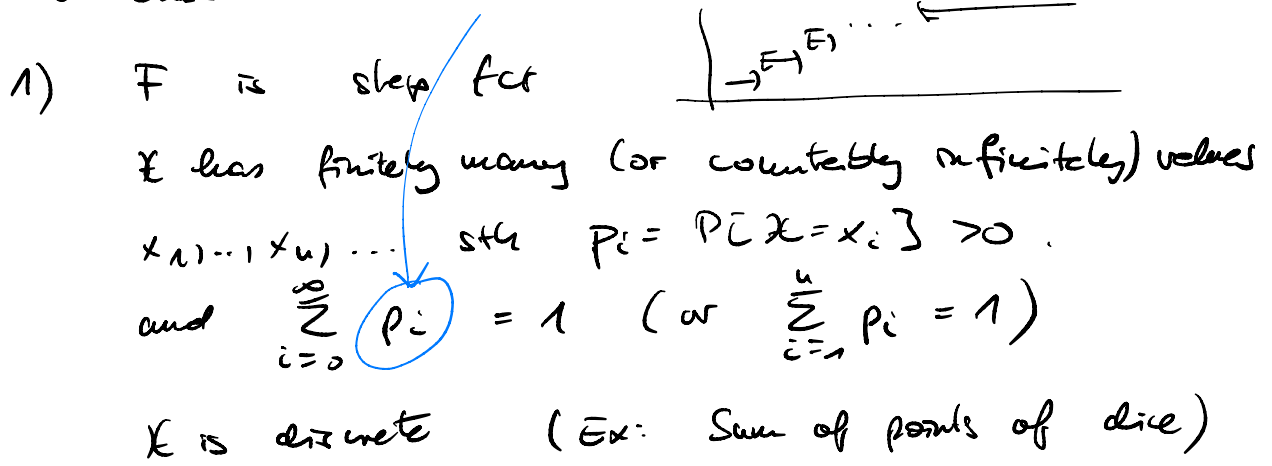 1) F is step fct
X has finitely many (or countably infinitely) values
x₁,..,xₙ,... sth pᵢ = P[X=xᵢ] >0.
and ∑_{i=0}^{∞} pᵢ = 1 (or ∑_{i=1}^{n} pᵢ = 1)
X is discrete (Ex: Sum of points of dice)